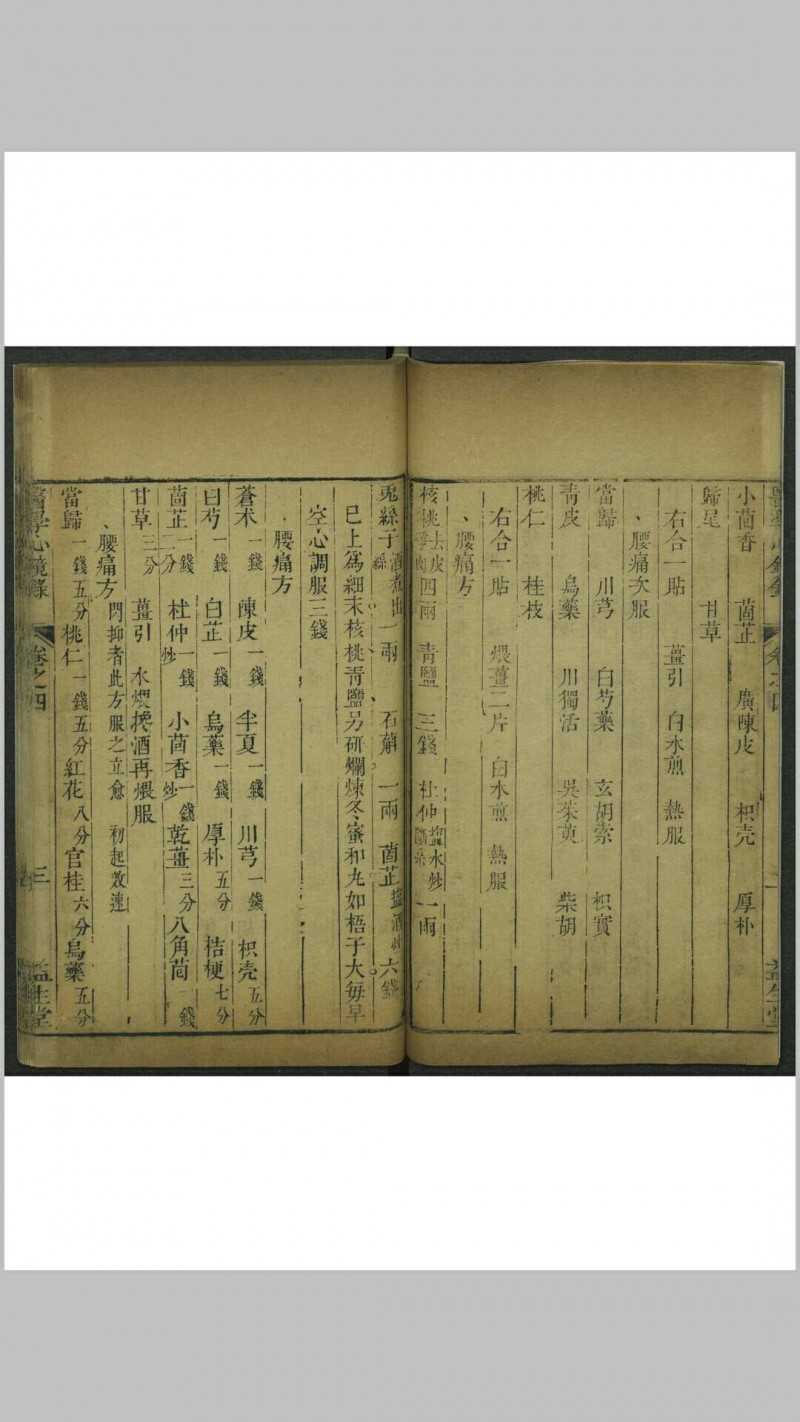 小茴香　茴芷　廣陳皮　枳壳　厚朴
歸尾　甘草
右合一貼　薑引　白水煎　熱服
、腰痛次服
當歸　川芎　白芍藥　玄胡索　枳實
青皮　烏藥　川獨活　吳茱萸　柴胡
桃仁　桂枝
右合一貼　煨薑二片　白水煎　熱服
、腰痛方
核桃去皮淨肉四兩　青鹽　三錢　杜仲塩水炒斷絲一兩
兎絲子酒煮出絲一兩　石斛　一兩　茴芷塩酒炒六錢
已上爲細末核桃青鹽另研爛煉冬蜜和丸如梧子大每早
空心調服三錢
、腰痛方
蒼术一錢　陳皮一錢　半夏一錢　川芎一錢　枳壳五分
白芍一錢　白芷一錢　烏藥一錢　厚朴五分　桔梗七分
茴芷一錢二分　杜仲炒一錢　小茴香炒一錢　乾薑三分　八角茴一錢
甘草三分　薑引　水煨攙酒再煨服
、腰痛方　閃抑者此方服之立愈　初起效速
當歸一錢五分　桃仁一錢五分　紅花八分　官桂六分　烏藥五分
醫學心鏡錄　卷之四　三　益生堂